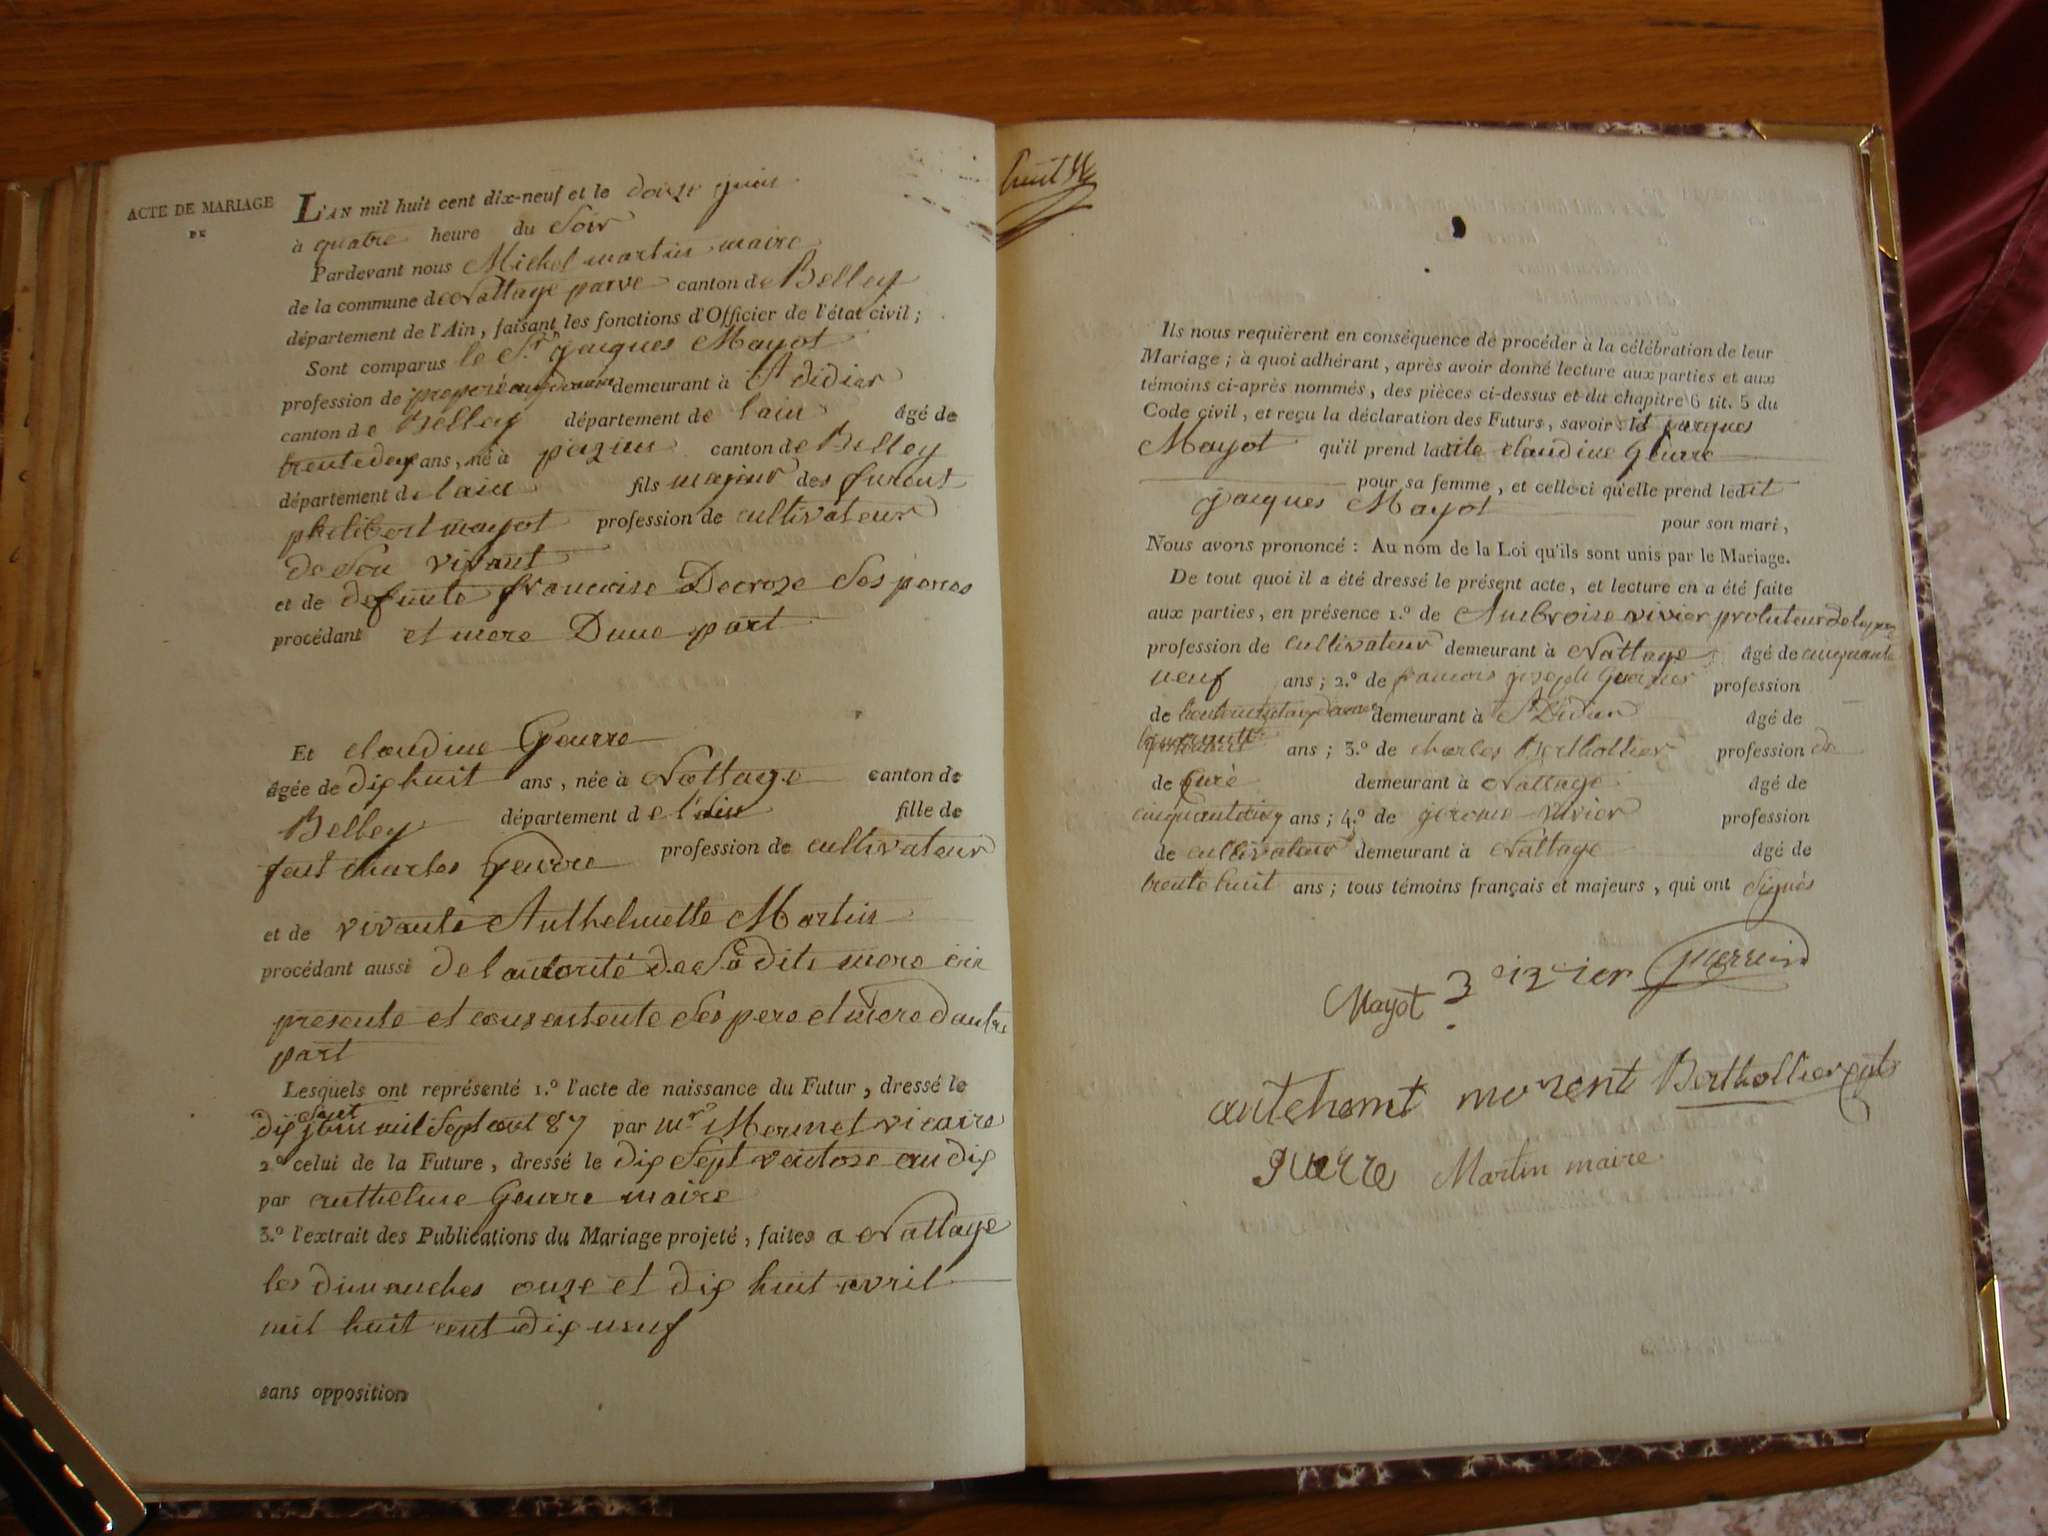 ACTE DE MARIAGE
DE
L'AN mil huit cent dix-neuf et le douze juin
à quatre heure du Soir
Pardevant nous Michel martin maire
de la commune de Nattage parve canton de Belley
département de l'Ain, faisant les fonctions d'Officier de l'état civil;
Sont comparus le Sr jacques Mayot
profession de demeurant à St didier
canton de Belley département de lain âgé de
trentedeux ans, né à canton de Belley
département de lain fils majeur des furent
philibert mayot profession de cultivateur
de Son vivant
et de defunte francoise Decroze Ses peres
procédant et mere Dune part
Et claudine Geurre
âgée de dix huit ans, née à Nattage canton de
Belley département de l'ain fille de
feut charles Geurre profession de cultivateur
et de vivante Anthelmette Martin
procédant aussi de lautorité de Sa dite mere ici
presente et consentente Ses pere et mere dautre
part
Lesquels ont représenté 1.º l'acte de naissance du Futur, dressé le
dix Sept juin mil Sept cent 87 par mr Mermet vicaire
2.º celui de la Future, dressé le dix Sept ventose an dix
par anthelme Geurre maire
3.º l'extrait des Publications du Mariage projeté, faites a Nattage
les dimanches onze et dix huit avril
mil huit cent dix neuf
sans opposition
huit
Ils nous requièrent en conséquence de procéder à la célébration de leur
Mariage; à quoi adhérant, après avoir donné lecture aux parties et aux
témoins ci-après nommés, des pièces ci-dessus et du chapitre 6 tit. 5 du
Code civil, et reçu la déclaration des Futurs, savoir: led jacques
Mayot qu'il prend ladite claudine Geurre
pour sa femme, et celle-ci qu'elle prend ledit
jacques Mayot pour son mari,
Nous avons prononcé: Au nom de la Loi qu'ils sont unis par le Mariage.
De tout quoi il a été dressé le présent acte, et lecture en a été faite
aux parties, en présence 1.º de Ambroise vivier
profession de cultivateur demeurant à Nattage âgé de cinquante
neuf ans; 2.º de francois joseph profession
de demeurant à St Didier âgé de
ans; 3.º de charles Berthollier profession de
de Curé demeurant à Nattage âgé de
cinquantecinq ans; 4.º de jerome vivier profession
de cultivateur demeurant à Nattage âgé de
trente huit ans; tous témoins français et majeurs, qui ont Signés
Mayot
Berthollier
guerre Martin maire